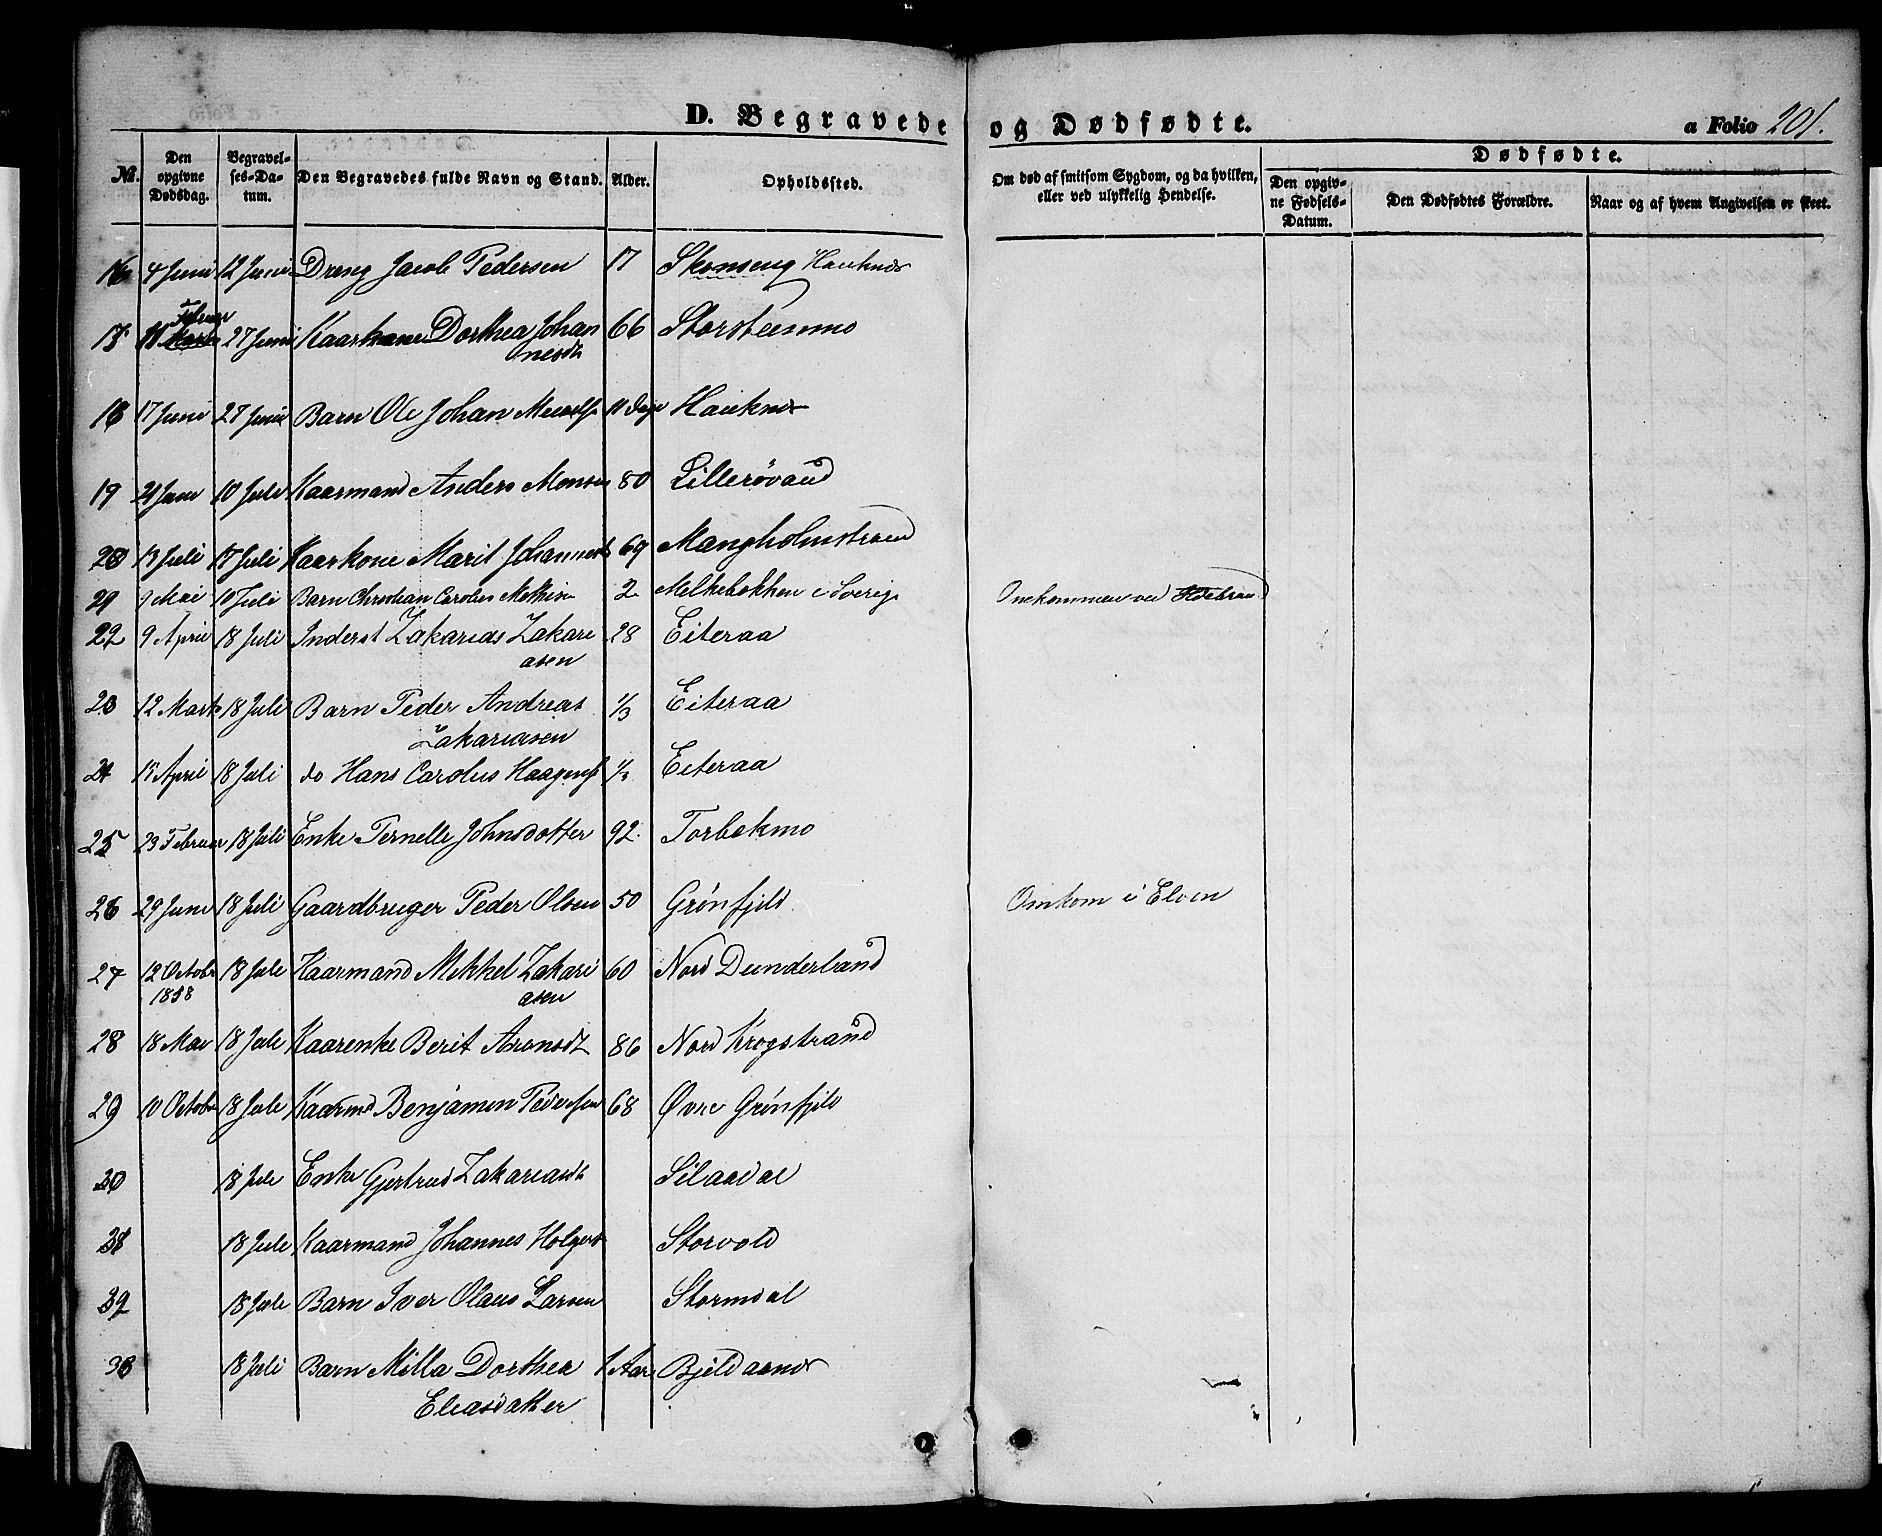 D. Begravede og Dødfødte. a Folio 201.
No. Den opgivne Dødsdag. Begravelses-Datum. Den Begravedes fulde Navn og Stand. Alder. Opholdssted. Om død af smitsom Sygdom, og da hvilken, eller ved ulykkelig Hendelse. Dødfødte.
Den opgivne Fødsels-Datum. Den Dødfødtes Forældre. Naar og af hvem Angivelsen er skeet.
16 4 Juni 12 Juni Dreng Jacob Pedersen 17 Skonseng Hauknes
Februar
17 18 27 Juni Kaarkone Dorthea Johan 66 Storsteenmo
nesdt
18 17 Juni 27 Juni Barn Ole Johan 11 Dage Hauknes
19 21 Juni 10 Juli Kaarmand Anders Monsen 80 Lillerøvand
20 13 Juli 17 Juli Kaarkone Marit Johannesdt 69 Mangholmstrand
21 9 Mai 10 Juli Barn Christian Carolus 2 Melkebækken i Sverig Omkommen ved Ildebrand
22 9 April 18 Juli Inderst Zakarias Zakari 28 Eiteraa
asen
23 12 Marts 18 Juli Barn Peder Andreas 1/3 Eiteraa
Zakariasen
24 15 April 18 Juli do Hans Carolus Haagens 1/3 Eiteraa
25 23 Februar 18 Juli Enke Pernelle Johnsdotter 92. Torbekmo
26 29 Juni 18 Juli Gaardbruger Peder Olsen 50 Grønfjeld Omkom i Elven
27 12 Octobr 18 Juli Kaarmand Mikkel Zakari 60 Nord Dunderland
1858 asen
28 18 Mai 18 Juli Kaarenke Berit Aronsdt 86 Nord Krogstrand
29 10 Octobr 18 Juli Kaarmd Benjamin Pedersen 68 Øvre Grønfjeld
30 18 Juli Enke Gjertrud Zakariasdt
31 18 Juli Kaarmand Johannes Holgers Storvold
32 18 Juli Barn Iver Olaus Larsen Stormdal
33 18 Juli Barn Milla Dorthea 1 Aar Bjeldaanes
Eliasdatter